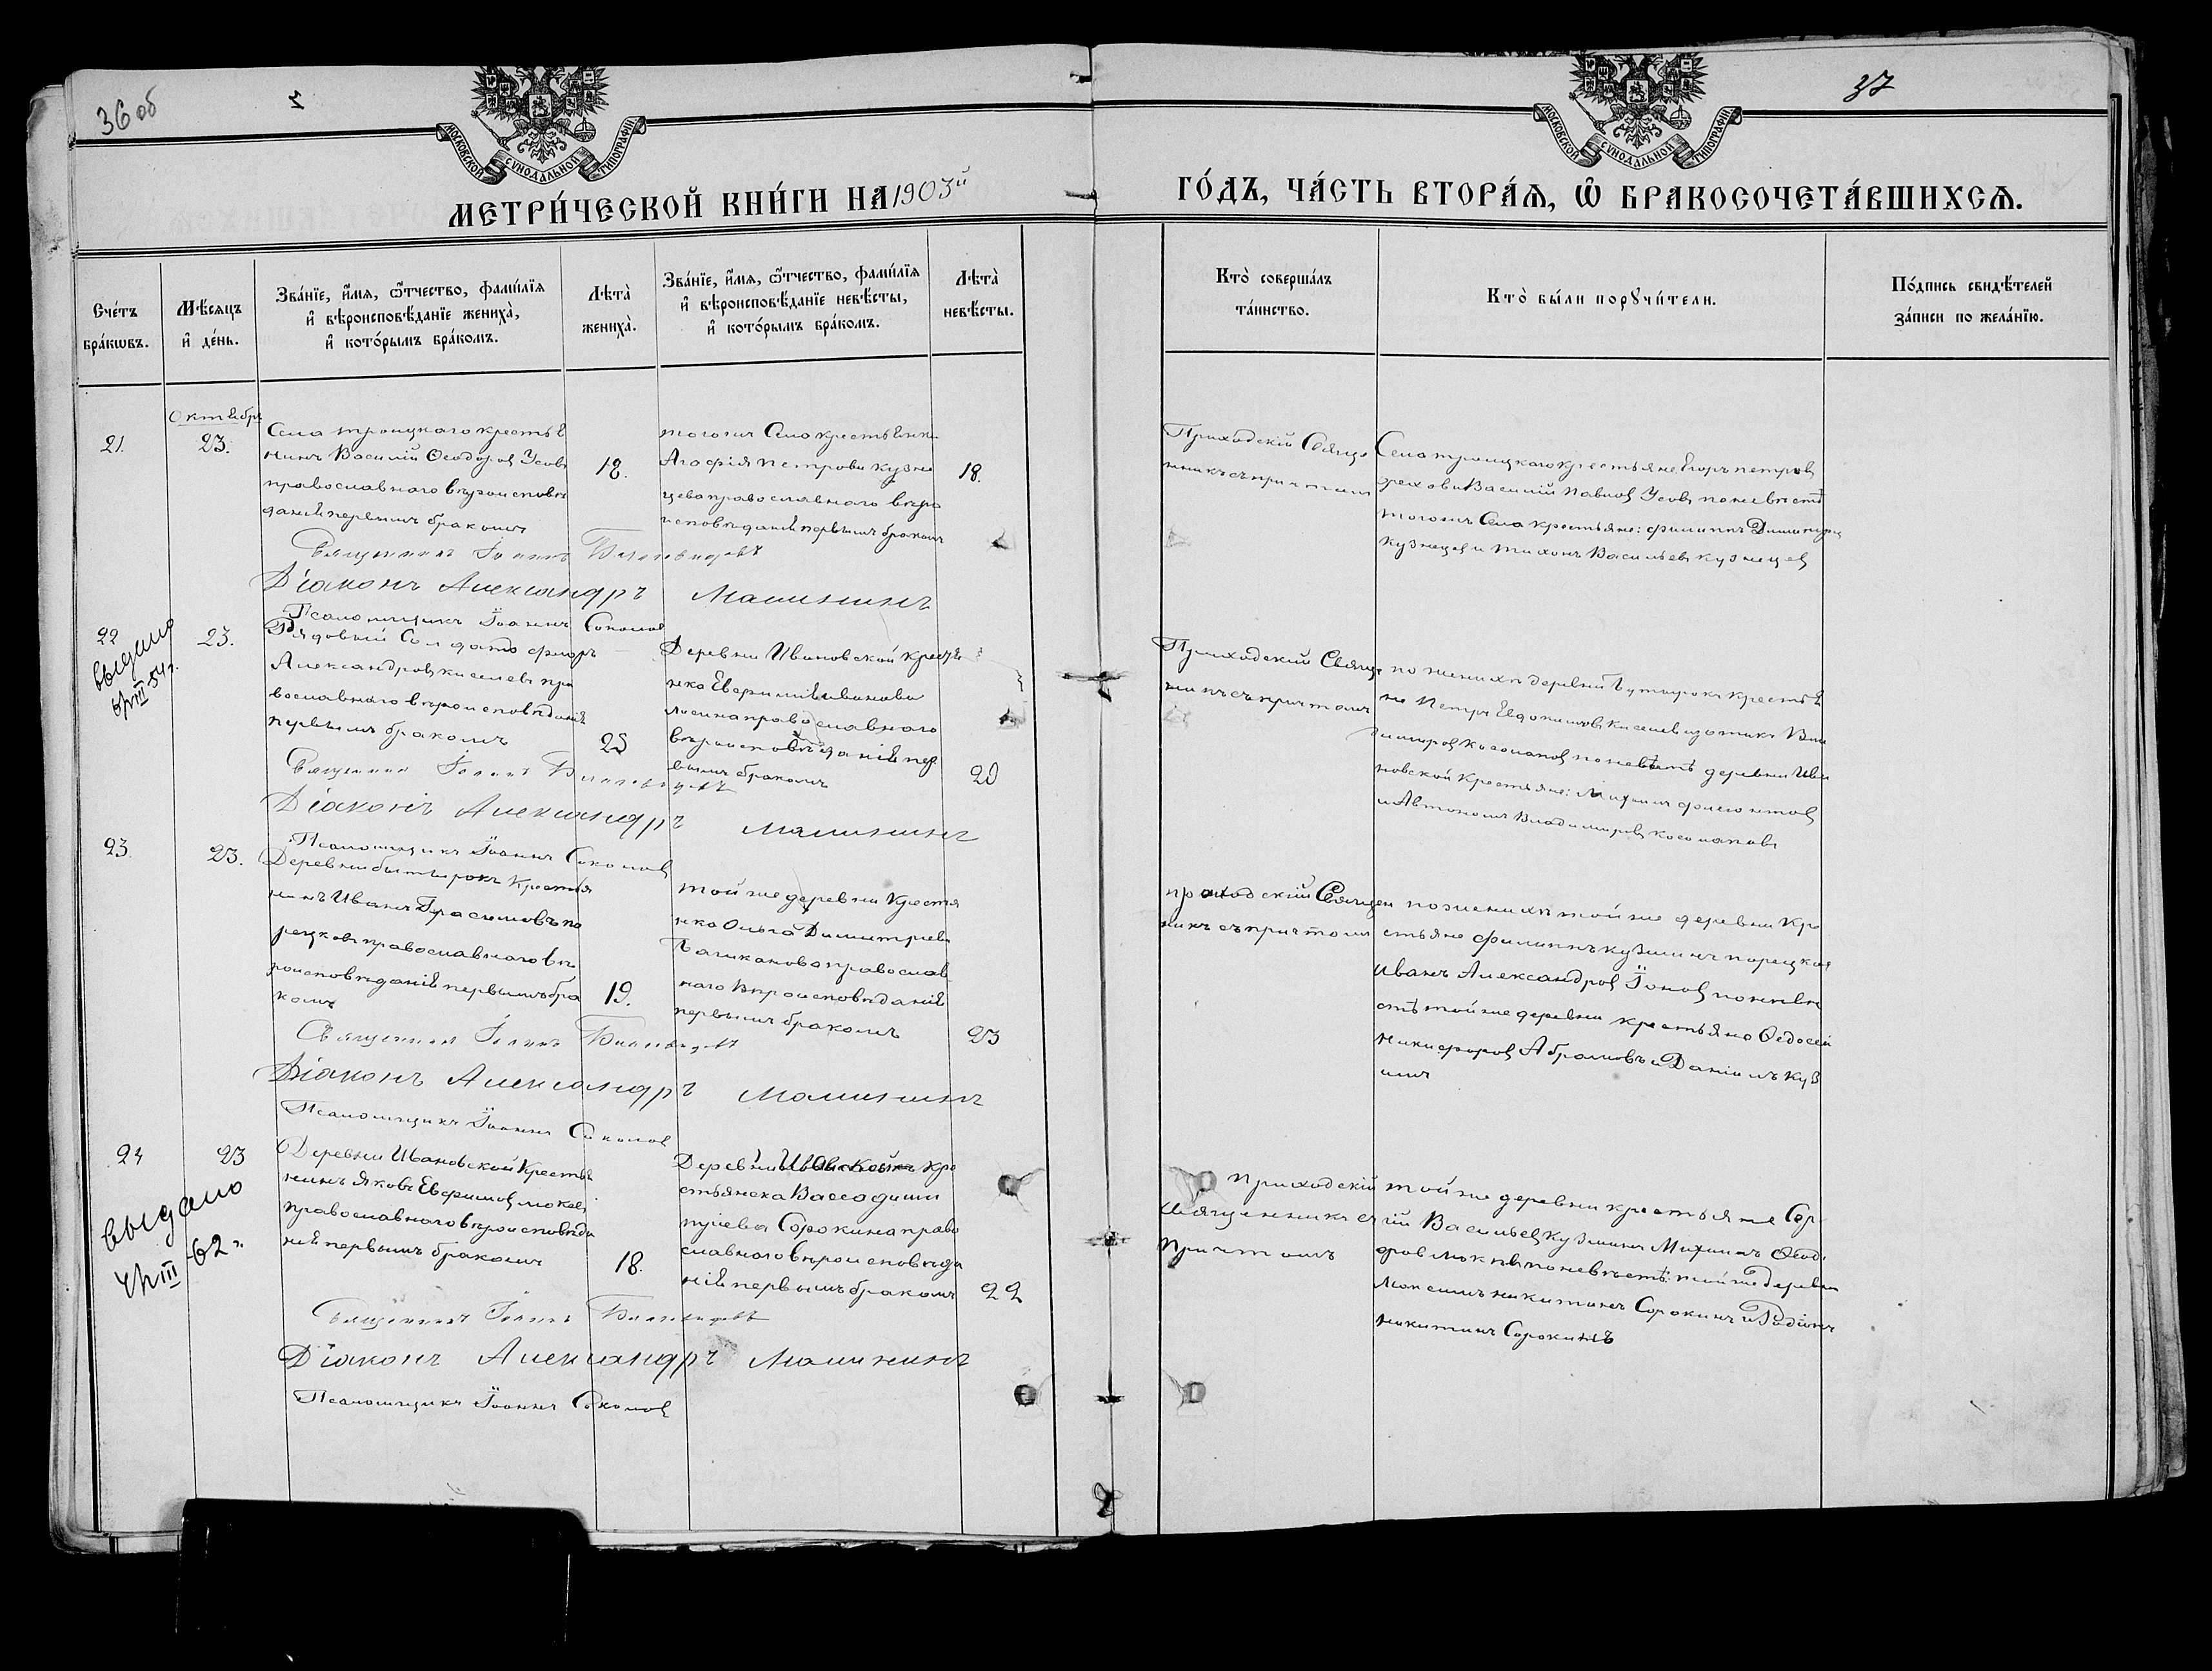 36 об
37
МОСКОВСКОЙ СѴНОДАЛЬНОЙ ТИПОГРАФІИ
МОСКОВСКОЙ СѴНОДАЛЬНОЙ ТИПОГРАФІИ
МЕТРИ́ЧЕСКОЙ КНИ́ГИ НА 1903й
ГО́ДЪ, ЧА́СТЬ ВТОРА́Ѧ, Ѡ҆ БРАКОСОЧЕТА́ВШИХСѦ.
Сче́тъ
бра́кѡвъ.
Мѣ́сяцъ
и҆ де́нь.
Зва́нїе, и҆́мѧ, ѻ҆́тчество, фамилїѧ
и҆ вѣроисповѣ́данїе жениха̀,
и҆ кото́рымъ бра́комъ.
Лѣта̀
жениха̀.
Зва́нїе, и҆́мѧ, ѻ҆́тчество, фамилїѧ
и҆ вѣроисповѣ́данїе невѣ́сты,
и҆ кото́рымъ бра́комъ.
Лѣта̀
невѣ́сты.
Кто̀ соверша́лъ
та́инство.
Кто̀ бы́ли порꙋчи́тели.
По́дпись свидѣ́телей
за́писи по жела́нїю.
21.
Октябрь
23.
Села троицкаго крестья
нинъ Василій Ѳеодоров Усовъ
православнаго вѣроисповѣ
данія первымъ бракомъ
18.
тогоже Села крестьянка
Агафія петрова кузне
цева православнаго вѣро
исповѣданія первымъ бракомъ
18.
Приходскій Свяще
нникъ съ причтомъ
Села троицкаго крестьяне Егоръ петров
Василій Павлов Усовъ по невѣстѣ
тогоже Села крестьяне: филиппъ Димитріев
Кузнецов и тихонъ Васильевъ кузнецов
Священникъ Іоаннъ
Діаконъ Александръ Малининъ
Псаломщикъ Іоаннъ Соколов
22
выдано
23.
Рядовый Солдатъ
Александров киселевъ пра
вославнаго вѣроисповѣданія
первымъ бракомъ
25
Деревни Ивановской кресть
нка Евфимія иванова
православнаго
вѣроисповѣданія пер
вымъ бракомъ
20
Приходскій Свяще
никъ съ причтомъ
по женихѣ деревни Бутырокъ крестья
не Петръ Евдокимовъ киселев
по невѣстѣ деревни Ива
новской Крестьяне:
и Автономъ Владимировъ
Священникъ Іоаннъ
Діаконъ Александръ Малининъ
Псаломщикъ Іоаннъ Соколов
23
23.
Деревни бытырокъ Крестья
нинъ Иванъ Герасимовъ по
рецковъ православнаго вѣ
роисповѣданія первымъ бра
комъ
19.
той же деревни Крестья
нка Ольга Димитріева
православ
наго вѣроисповѣданія
первымъ бракомъ
23
приходскій Священ
никъ съ причтомъ
по женихѣ той же деревни Кре
стьяне филиппъ кузминъ порецков
Иванъ Александров Іонов по невѣ
стѣ той же деревни крестьяне Ѳедосей
Никифоров Абрамовъ и Даніилъ Куз
минъ
Священникъ Іоаннъ
Діаконъ Александръ Малининъ
Псаломщикъ Іоаннъ Соколов
24
выдано
62 г.
23
Деревни Ивановской Крестья
нинъ Яковъ Евфимов
православнаго вѣроисповѣда
нія первымъ бракомъ
18.
Деревни Ивановской кре
стьянска Васса
Сорокина право
славнаго вѣроисповѣда
нія первымъ бракомъ
22
Приходскій
Священникъ съ
Причтомъ
той же деревни крестьяне Сер
гій Васильев Кузминъ Михаилъ Ѳеодо
по невѣстѣ: той же Деревни
Максимъ никитинъ Сорокинъ и Радіонъ
никитинъ Сорокинъ
Священникъ Іоаннъ
Діаконъ Александръ Малининъ
Псаломщикъ Іоаннъ Соколов